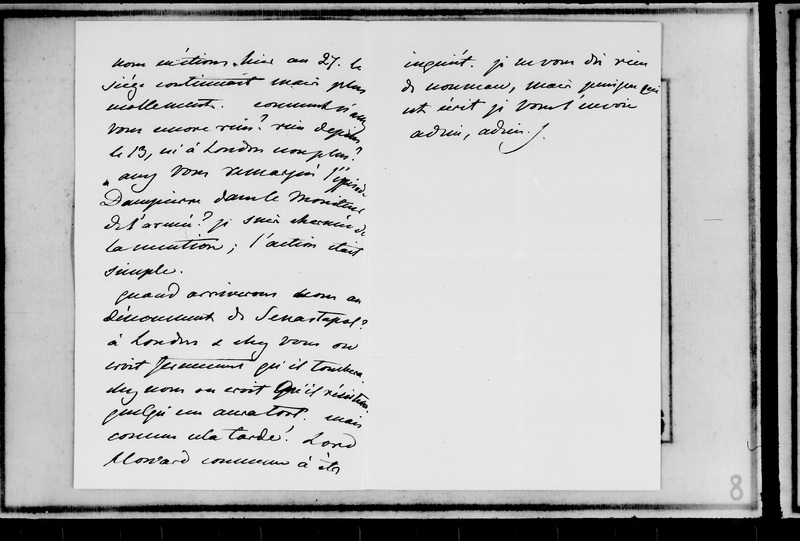 nous n'étions hier au 27. le
siège continuait mais plus
mollement. comment n'avez
vous encore rien? rien depuis
le 13, ni à London non plus?
avez vous remarqué l'épisode
Dampierre dans le Moniteur
de l'armée? je suis charmée de
la mention; l'action était
simple.
quand arriverons nous au
dénouement de Sevastopol?
à London & chez vous on
croit fermement qu'il tombera
chez nous on croit qu'il résistera
quelqu'un aura tort. mais
comme cela tarde! Lord
Howard commence à être
inquiet. je ne vous dis rien
de nouveau, mais puisque ceci
est écrit je vous l'envoie
adieu, adieu.
8